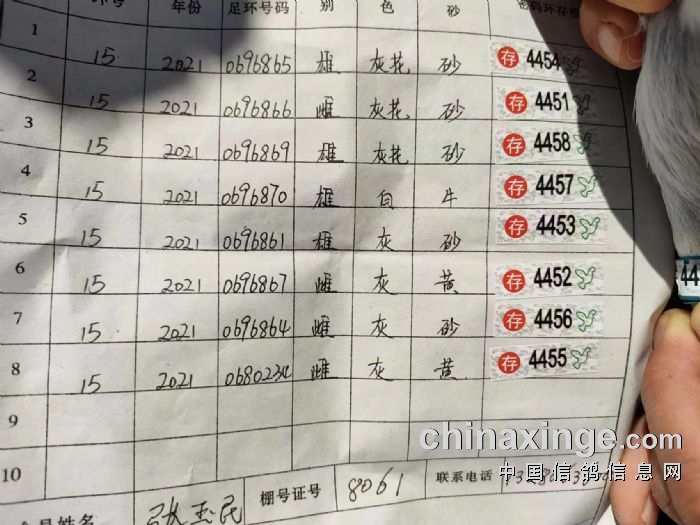 年份 足环号码 别 色 砂
1 15 2021 0696865 雄 灰花 砂 存 4454
2 15 2021 0696866 雌 灰花 砂 存 4451
3 15 2021 0696869 雄 灰花 砂 存 4458
4 15 2021 0696870 雄 白 牛 存 4457
5 15 2021 0696861 雄 灰 砂 存 4453
6 15 2021 0696867 雌 灰 黄 存 4452
7 15 2021 0696864 雌 灰 砂 存 4456
8 15 2021 0680234 雌 灰 黄 存 4455
9
10
棚号证号 8061 联系电话
员姓名 张玉民
44
chinaxinge.com
中国信鸽信息网